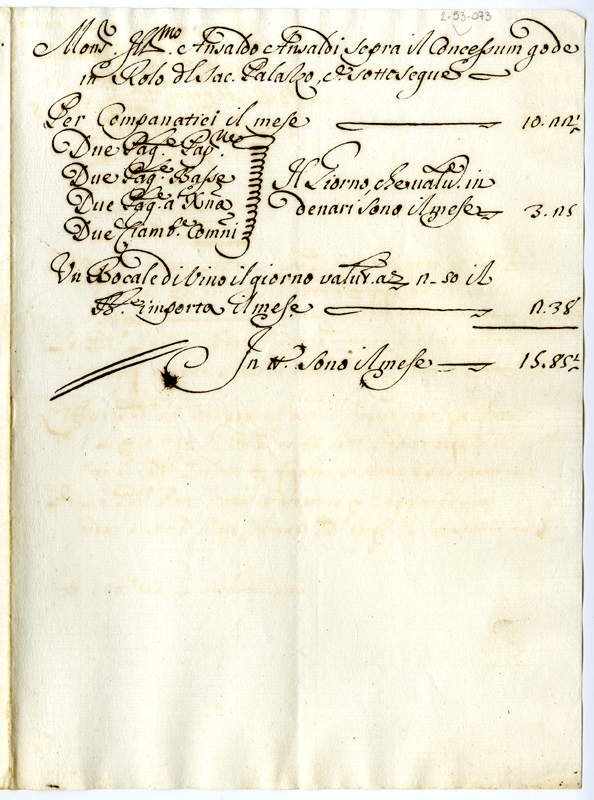 2-53-073
Mons.r Ill.mo Ansaldo Ansaldi sopra il Concessum gode
in Rolo del Sac. Palazzo, e sottosegue
Per Companatici il mese 10.22½
Due Pag.e Pap.e
Due Pag.e Basse
Due Pag.e a Xña
Due Ciamb.e Comñi
Il Giorno, che valu.e in
denari sono il mese 3.25
Un Bocale di Vino il giorno valut. a 2.50 il
B.le importa il mese 2.38
In tt.o sono il mese 15.85½